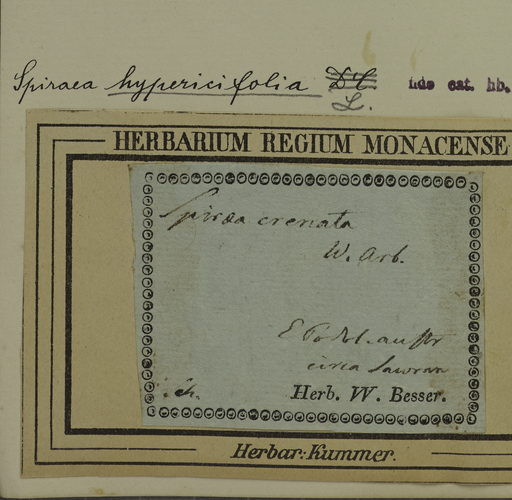 Spiraea hypericifolia D C fide cat. hb.
L.
HERBARIUM REGIUM MONACENSE
Spiraea crenata
W. Arb.
E Podol. austr
circa Sawran
Herb. W. Besser.
Herbar: Kummer.